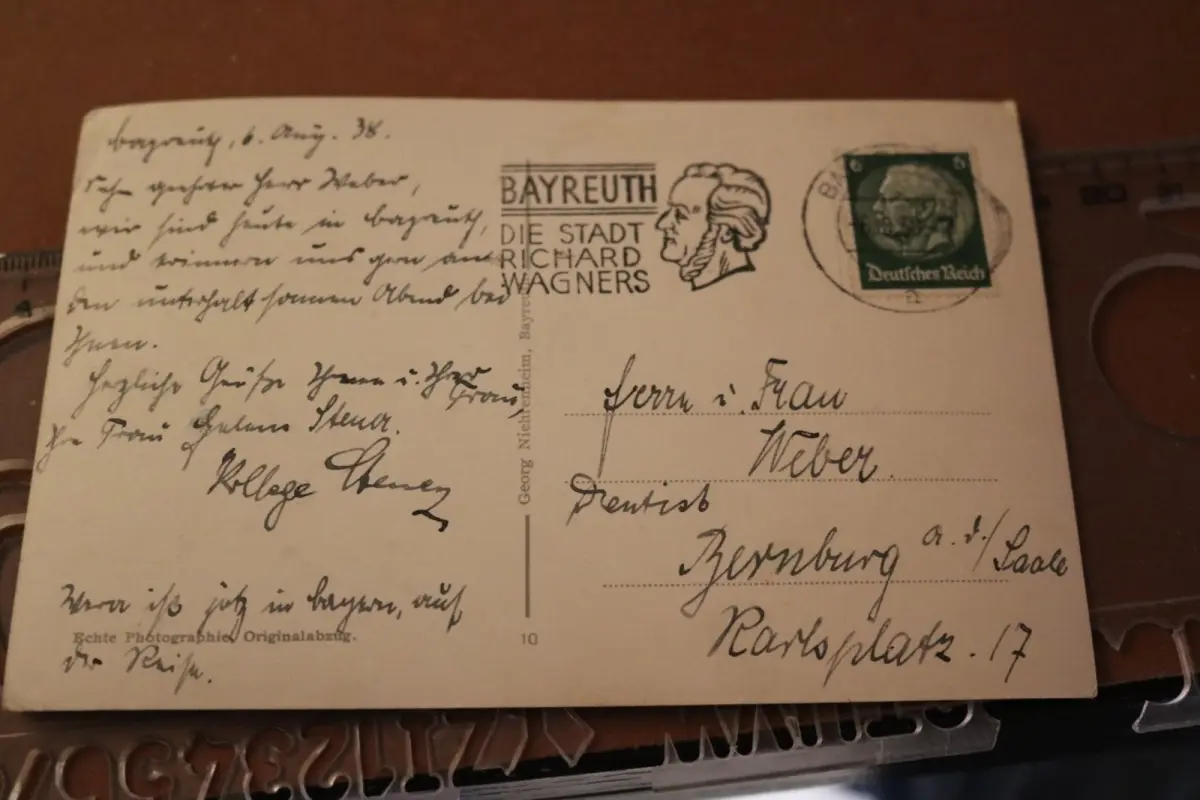 Bayreuth, 6. Aug. 38.
Sehr geehrter Herr Weber,
wir sind heute in Bayreuth,
und erinnern uns gern an
den unterhaltsamen Abend bei
Ihnen.
Herzliche Grüße Ihnen u. Ihrer
Frau,
Ihre Frau Helene
Kollege
Wera ist jetz in Bayern, auf
der Reise.
Echte Photographie, Originalabzug.
10
Georg Niehrenheim, Bayreuth
BAYREUTH
DIE STADT
RICHARD
WAGNERS
6 6
Deutsches Reich
a
Herrn u. Frau
Weber.
Dentist
Bernburg a. d./Saale
Karlsplatz. 17